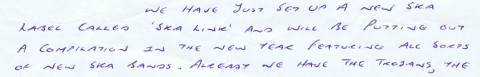 WE HAVE JUST SET UP A NEW SKA
LABEL CALLED 'SKA LINK' AND WILL BE PUTTING OUT
A COMPILATION IN THE NEW YEAR FEATURING ALL SORTS
OF NEW SKA BANDS. ALREADY WE HAVE THE TROJANS, THE